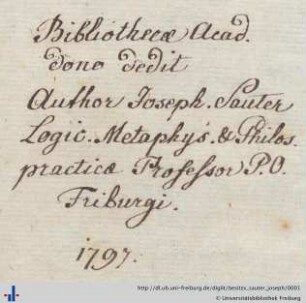 Bibliothecæ Acad.
dono dedit
Author Joseph. Sauter
Logic. Metaphys. & Philos.
practicæ Professor P.O.
Friburgi.
1797.
http://dl.ub.uni-freiburg.de/diglit/besitzv_sauter_joseph/0001
© Universitätsbibliothek Freiburg